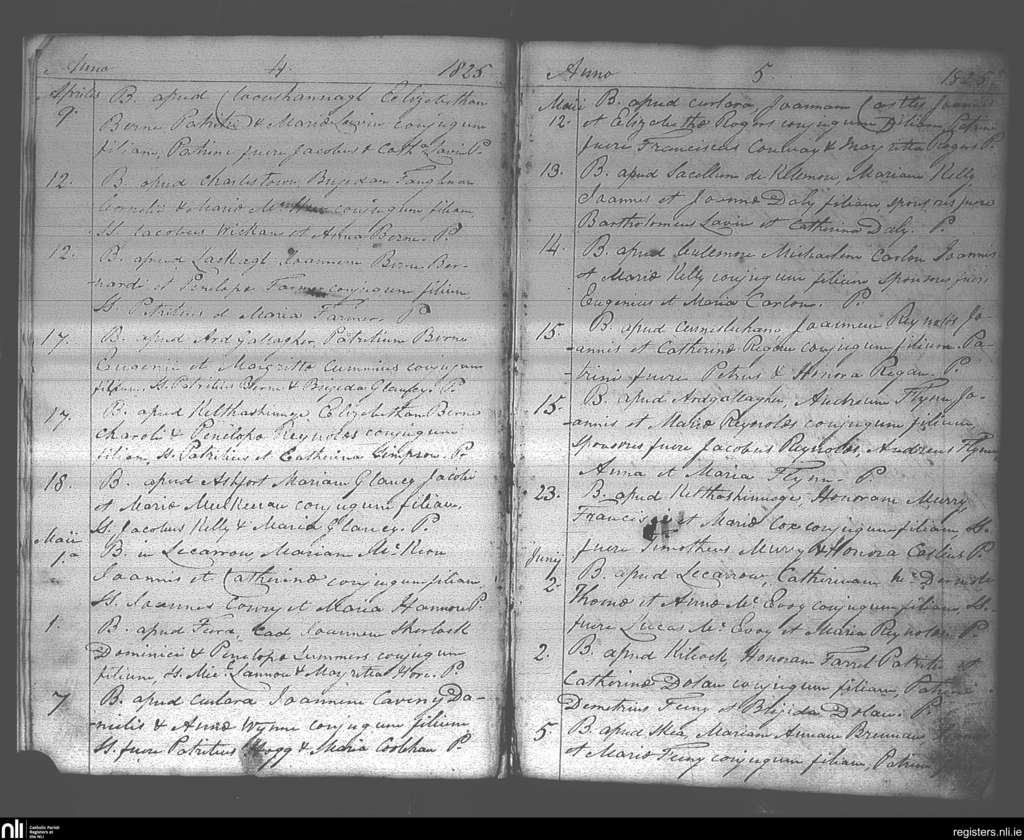 Anno 4. 1825
Aprilis B. apud Elizabetham
9. Berne Patritii & Mariæ Lavin conjugum
filiam, Patrini fuere Jacobus & Cath.a Lavin P.
12. B. apud Charlestown, Brijidam
Cornelii & Mariæ conjugum filiam
St. Jacobus et Anna Berne. P.
12. B. apud Joannem Berne Ber-
nardi et Penelope Farmer conjugum filium,
St. Patritius et Maria Farmer. P.
17. B. apud Ardgallagher, Patritium Berne
Eugenii et Margritta Cummins conjugum
filium, St. Patritius Berne & Brijida Glancy. P.
17. B. apud Kilthashinnoge Elizabetham Berne
Charoli & Penelope Reynolds conjugum
filiam, St. Patritius et Catherina Simpson. P.
18. B. apud Ashfort Mariam Glancy Jacobi
et Mariæ Mulkeeran conjugum filiam,
St. Jacobus Kelly & Maria Glancy. P.
Maii B. in Lecarrow, Mariam McKeon
1.a Joannis et Catherinæ conjugum filiam,
St. Joannes et Maria Hannon P.
1. B. apud Joannem Sherlock
Dominici & Penelope Summers conjugum
filium, St. Mic.l Lannon & Margritta Hore. P.
7 B. apud Curlara Joannem Caveny Da-
-nielis & Annæ Wynne conjugum filium
St. fuere Patritius Hogg & Maria P.
Anno 5 1825
Maii B. apud Curlara, Joannem Castles Joannis
12. et Elizabethæ Rogers conjugum filium Patrini
fuere Franciscus Conway & Margritta Rogers P.
13. B. apud Sacellum de Kilemore, Mariam Kelly,
Joannis et Joannæ Daly filiam, sponsores fuere
Bartholomeus Lavin et Catherina Daly. P.
14. B. apud Michaelem Carlon Joannis
et Mariæ Kelly conjugum filium sponsores fuere
Eugenius et Maria Carlon. P.
15. B. apud Joannem Reynolds Jo-
-annis et Catherinæ Regan conjugum filium. Pa-
-trini fuere Petrus & Honora Regan. P.
15. B. apud Ardgallagher, Andream Flynn Jo-
annis et Mariæ Reynolds conjugum filium,
Sponsores fuere Jacobus Reynolds, Andreas Flynn,
Anna et Maria Flynn. P.
23. B. apud Kilthashinnoge, Honoram Murry
Francisci et Mariæ Cox conjugum filiam, St.
fuere Timotheus Murry & Honora P.
Junij B. apud Lecarrow, Catherinam
2. Thomæ et Annæ McEvoy conjugum filiam, St.
fuere Lucas McEvoy et Maria Reynolds. P.
2. B. apud Kilcock, Honoram Farrel Patritii et
Catherinæ Dolan conjugum filiam, Patrini
Demetrius Feeny et Brijida Dolan. P.
5 B. apud Skea, Mariam Annam Brennan
et Mariæ Feeny conjugum filiam, Patrini
nli Catholic Parish Registers at the NLI
registers.nli.ie